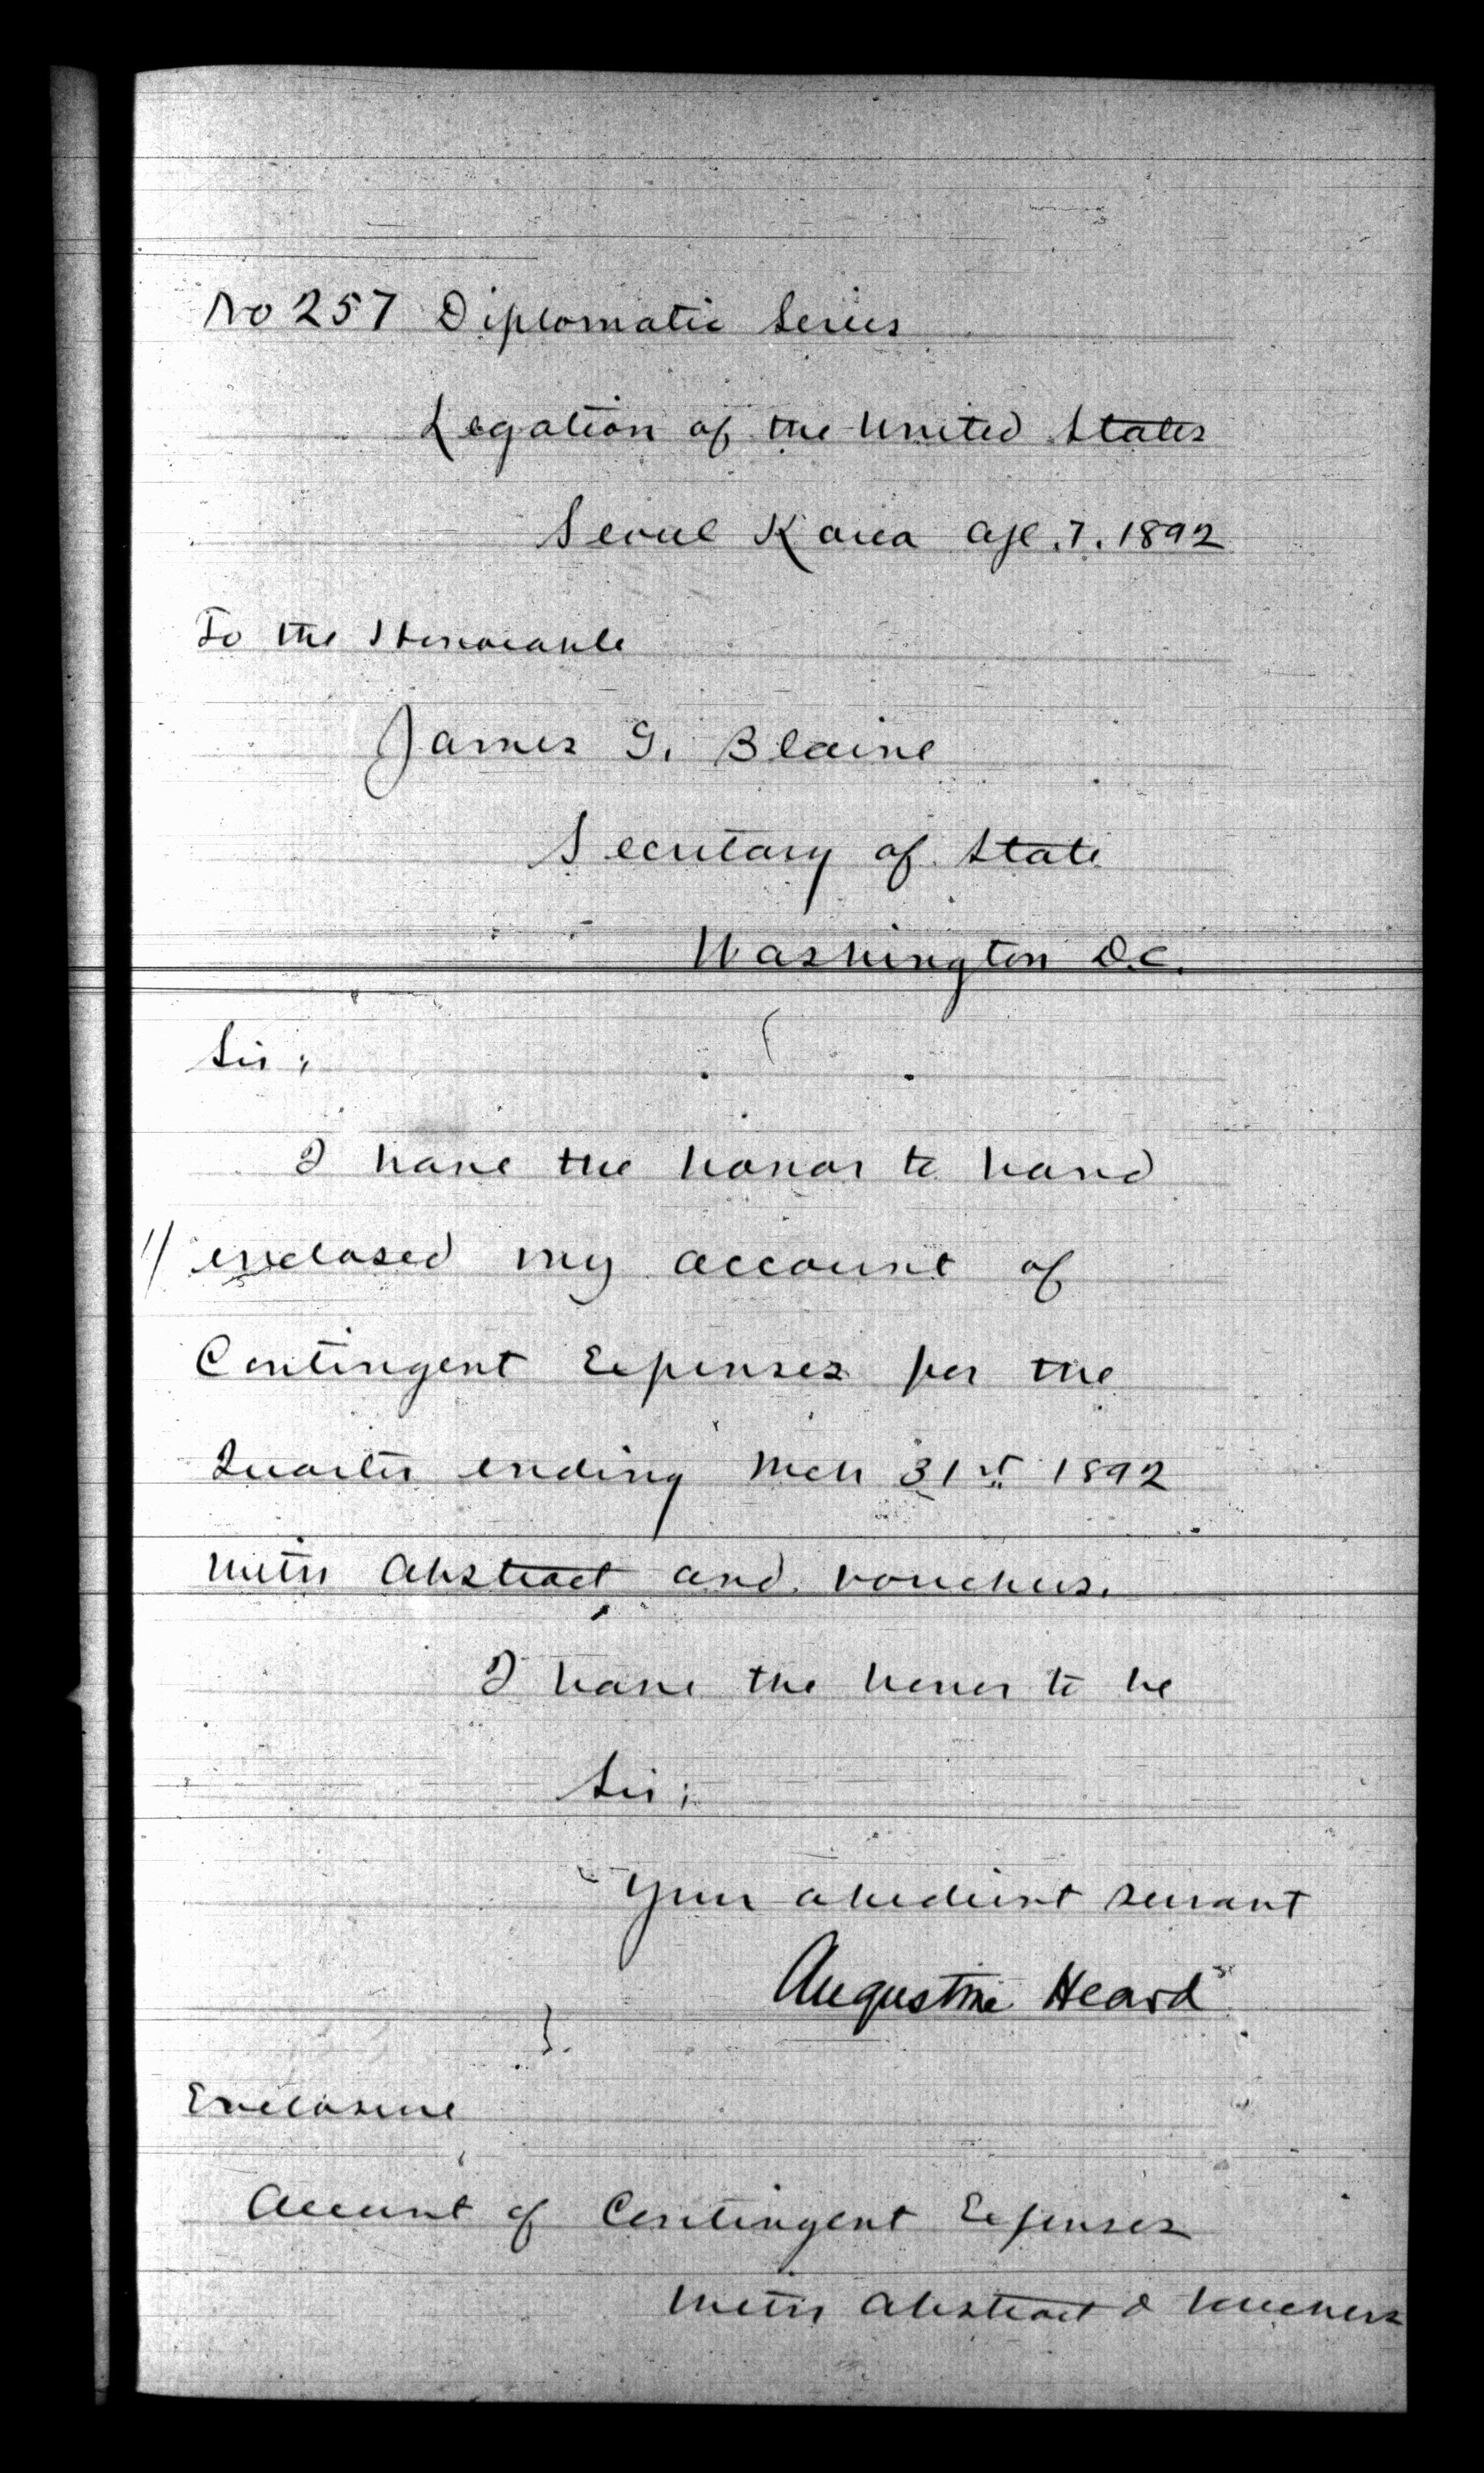 No 257 Diplomatic Series
Legation of the United States
Seoul Korea Apl. 7. 1892
To the Honorable
James G. Blaine
Secretary of State
Washington D.C.
Sir;
I have the honor to hand
1/ enclosed my account of
Contingent Expenses for the
Quarter ending Mch 31st 1892
with Abstract and vouchers.
I have the honor to be
Sir;
Your obedient servant
Augustine Heard
Enclosure
Account of Contingent Expenses
with Abstract & vouchers